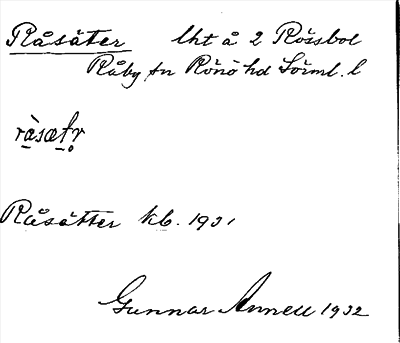 Råsäter lht å 2 Rössbol
Råby sn Rönö hd Sörml. l
ràsætr
Råsätter kb. 1931
Gunnar Annell 1932